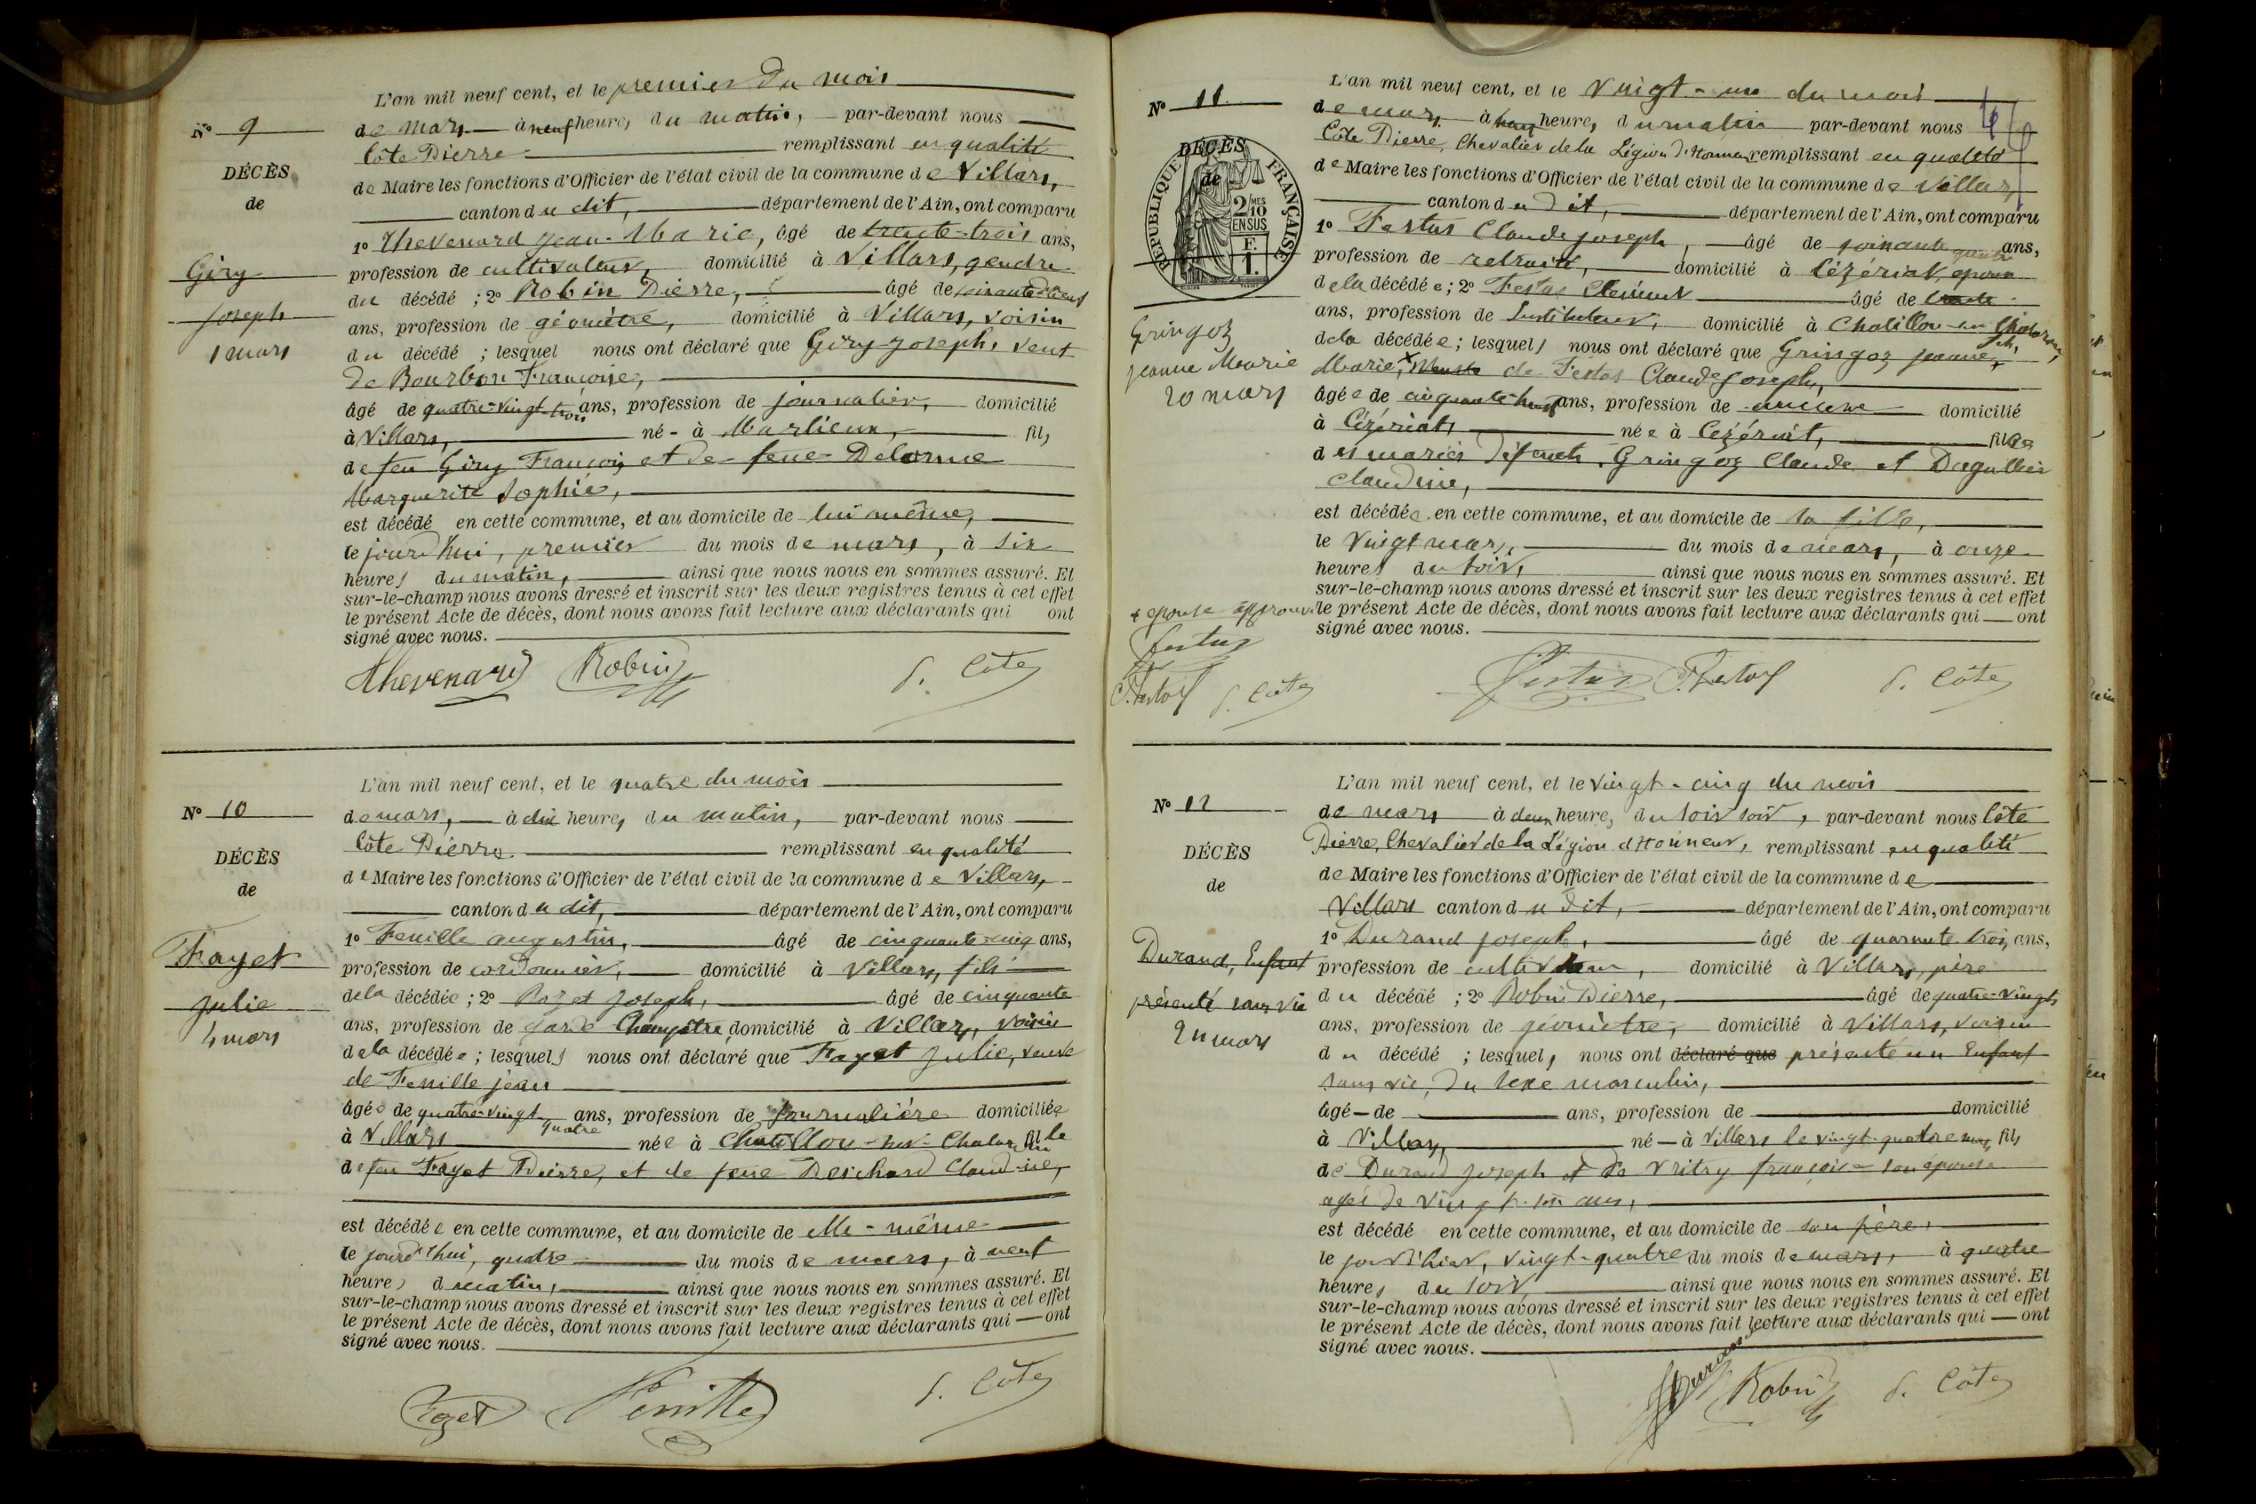 N° 9
DÉCÈS
de
Giry
Joseph
1 mars
L'an mil neuf cent, et le premier du mois
de mars à neuf heures du matin, par-devant nous
Côte Pierre remplissant en qualité
de Maire les fonctions d'Officier de l'état civil de la commune de Villars,
canton du dit, département de l'Ain, ont comparu
1° Thevenard Jean-Marie, âgé de trente-trois ans,
profession de cultivateur, domicilié à Villars, gendre
du décédé ; 2° Robin Pierre, âgé de
ans, profession de géomètre, domicilié à Villars, voisin
du décédé ; lesquel nous ont déclaré que Giry Joseph, veuf
de Bourbon Françoise,
âgé de quatre-vingt-trois ans, profession de journalier, domicilié
à Villars, né à Marlieux, fils
de feu Giry François et de feue Delorme
Marguerite Sophie,
est décédé en cette commune, et au domicile de lui même,
le jourd'hui, premier du mois de mars, à six
heures du matin, ainsi que nous nous en sommes assuré. Et
sur-le-champ nous avons dressé et inscrit sur les deux registres tenus à cet effet
le présent Acte de décès, dont nous avons fait lecture aux déclarants qui ont
signé avec nous.
Thevenard Robin P. Côte
N° 10
DÉCÈS
de
Fayet
Julie
4 mars
L'an mil neuf cent, et le quatre du mois
de mars, à dix heures du matin, par-devant nous
Côte Pierre remplissant en qualité
de Maire les fonctions d'Officier de l'état civil de la commune de Villars,
canton du dit, département de l'Ain, ont comparu
1° Fenille augustin, âgé de cinquante-cinq ans,
profession de cordonnier, domicilié à Villars, fils
de la décédée ; 2° Rozet Joseph, âgé de cinquante
ans, profession de garde Champêtre domicilié à Villars, voisin
de la décédée ; lesquels nous ont déclaré que Fayet Julie, veuve
de Fenille jean
âgée de quatre-vingt quatre ans, profession de journalière domiciliée
à Villars née à Chatillon-sur-Chalaronne fille
de feu Fayet Pierre, et de feue Claudine,
est décédée en cette commune, et au domicile de elle-même
le jourd'hui, quatre du mois de mars, à neuf
heures du matin, ainsi que nous nous en sommes assuré. Et
sur-le-champ nous avons dressé et inscrit sur les deux registres tenus à cet effet
le présent Acte de décès, dont nous avons fait lecture aux déclarants qui ont
signé avec nous.
Rozet Fenille P. Côte
N° 11
DÉCÈS
de
RÉPUBLIQUE FRANÇAISE
2/10MES
EN SUS
F.
1.
Gringoz
Jeanne Marie
20 mars
L'an mil neuf cent, et le vingt-un du mois
de mars à heures du matin par-devant nous
Côte Pierre, Chevalier de la Légion d'Honneur remplissant en qualité
de Maire les fonctions d'Officier de l'état civil de la commune de Villars
canton du dit, département de l'Ain, ont comparu
1° Festas Claude Joseph, âgé de soixante quatre ans,
profession de retraité, domicilié à Cézériat, époux
de la décédée ; 2° Festas Clément âgé de trente
ans, profession de Instituteur, domicilié à Chatillon-sur Chalaronne,
de la décédée ; lesquels nous ont déclaré que Gringoz jeanne,
Marie, x de Festas Claude Joseph,
âgée de cinquante ans, profession de aucune domicilié
à Cézériat, née à Cézériat, fille
des mariés défunts Gringoz Claude et
Claudine,
est décédée en cette commune, et au domicile de sa fille,
le vingt mars, du mois de mars, à onze
heures du soir, ainsi que nous nous en sommes assuré. Et
sur-le-champ nous avons dressé et inscrit sur les deux registres tenus à cet effet
le présent Acte de décès, dont nous avons fait lecture aux déclarants qui ont
signé avec nous.
x épouse approuvé
Festas
C. Festas P. Côte
Festas C. Festas P. Côte
N° 12
DÉCÈS
de
Durand, Enfant
présenté sans vie
24 mars
L'an mil neuf cent, et le vingt-cinq du mois
de mars à deux heures du soir soir, par-devant nous Côte
Pierre, Chevalier de la Légion d'Honneur, remplissant en qualité
de Maire les fonctions d'Officier de l'état civil de la commune de
Villars canton du dit, département de l'Ain, ont comparu
1° Durand Joseph, âgé de quarante trois ans,
profession de cultivateur, domicilié à Villars, père
du décédé ; 2° Robin Pierre, âgé de quatre-vingts
ans, profession de géomètre, domicilié à Villars, voisin
du décédé ; lesquels nous ont déclaré que présenté un Enfant
sans vie, du sexe masculin,
âgé de ans, profession de domicilié
à Villars, né à Villars le vingt-quatre mars, fils
de Durand Joseph et de Vritry françoise son épouse
agée de vingt ans,
est décédé en cette commune, et au domicile de son père,
le jour d'hier, vingt-quatre du mois de mars, à quatre
heures du soir, ainsi que nous nous en sommes assuré. Et
sur-le-champ nous avons dressé et inscrit sur les deux registres tenus à cet effet
le présent Acte de décès, dont nous avons fait lecture aux déclarants qui ont
signé avec nous.
Durand Robin P. Côte